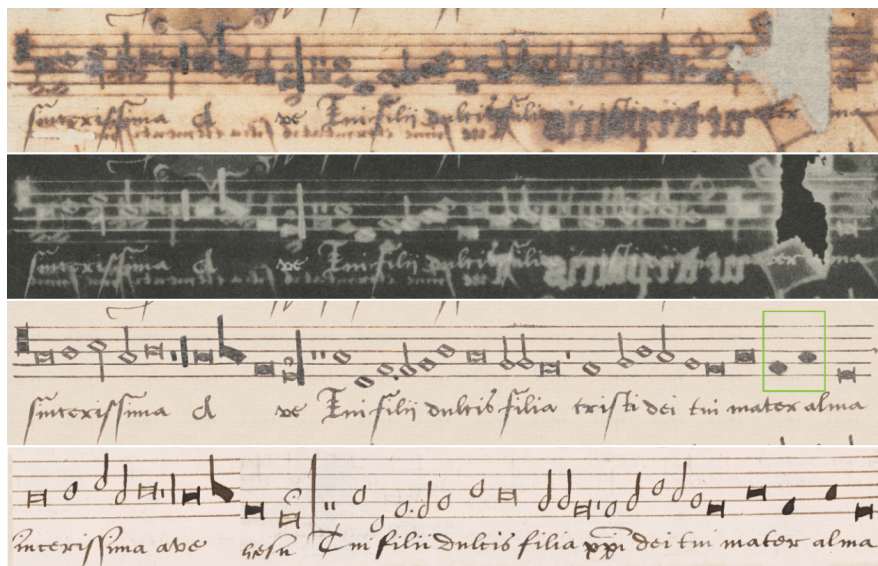 sincerissima A ve Tui filii dulcis filia mater alma
sincerissima A ve Tui filii dulcis filia alma
sincerissima A ve Tui filii dulcis filia cristi dei tui mater alma
incerissima ave hesu Tui filii dulcis filia xpi dei tui mater alma